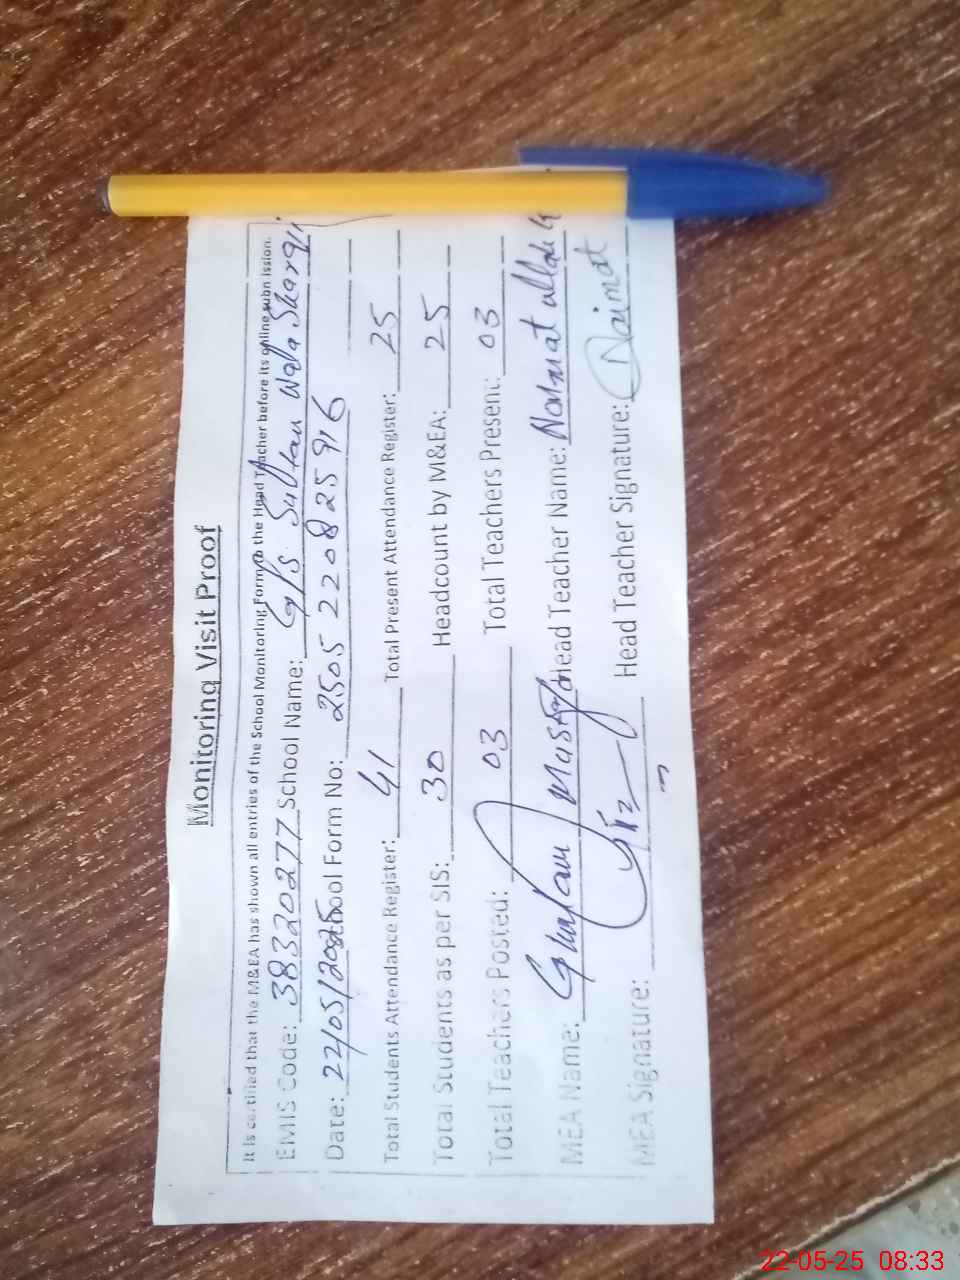 Monitoring Visit Proof
It is certified that the M&EA has shown all entries of the School Monitoring Form to the Head Teacher before its online submission.
EMIS Code: 38320277 School Name: GPS Sultan Wala Sharqi
Date: 22/05/2025 School Form No: 2505220825916
Total Students Attendance Register: 41 Total Present Attendance Register: 25
Total Students as per SIS: 30 Headcount by M&EA: 25
Total Teachers Posted: 03 Total Teachers Present: 03
MEA Name: Ghulam Mustafa Head Teacher Name:
MEA Signature: Head Teacher Signature:
22-05-25 08:33